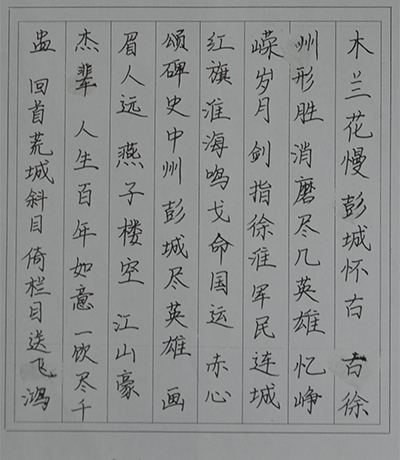 木兰花慢 彭城怀古 古徐
州形胜消磨尽几英雄 忆峥
嵘岁月 剑指徐淮 军民连城
红旗淮海鸣戈命国运 赤心
颂碑史中州彭城尽英雄 画
眉人远 燕子楼空 江山豪
杰辈 人生百年如意 一饮尽千
盅 回首荒城斜目 倚栏目送飞鸿